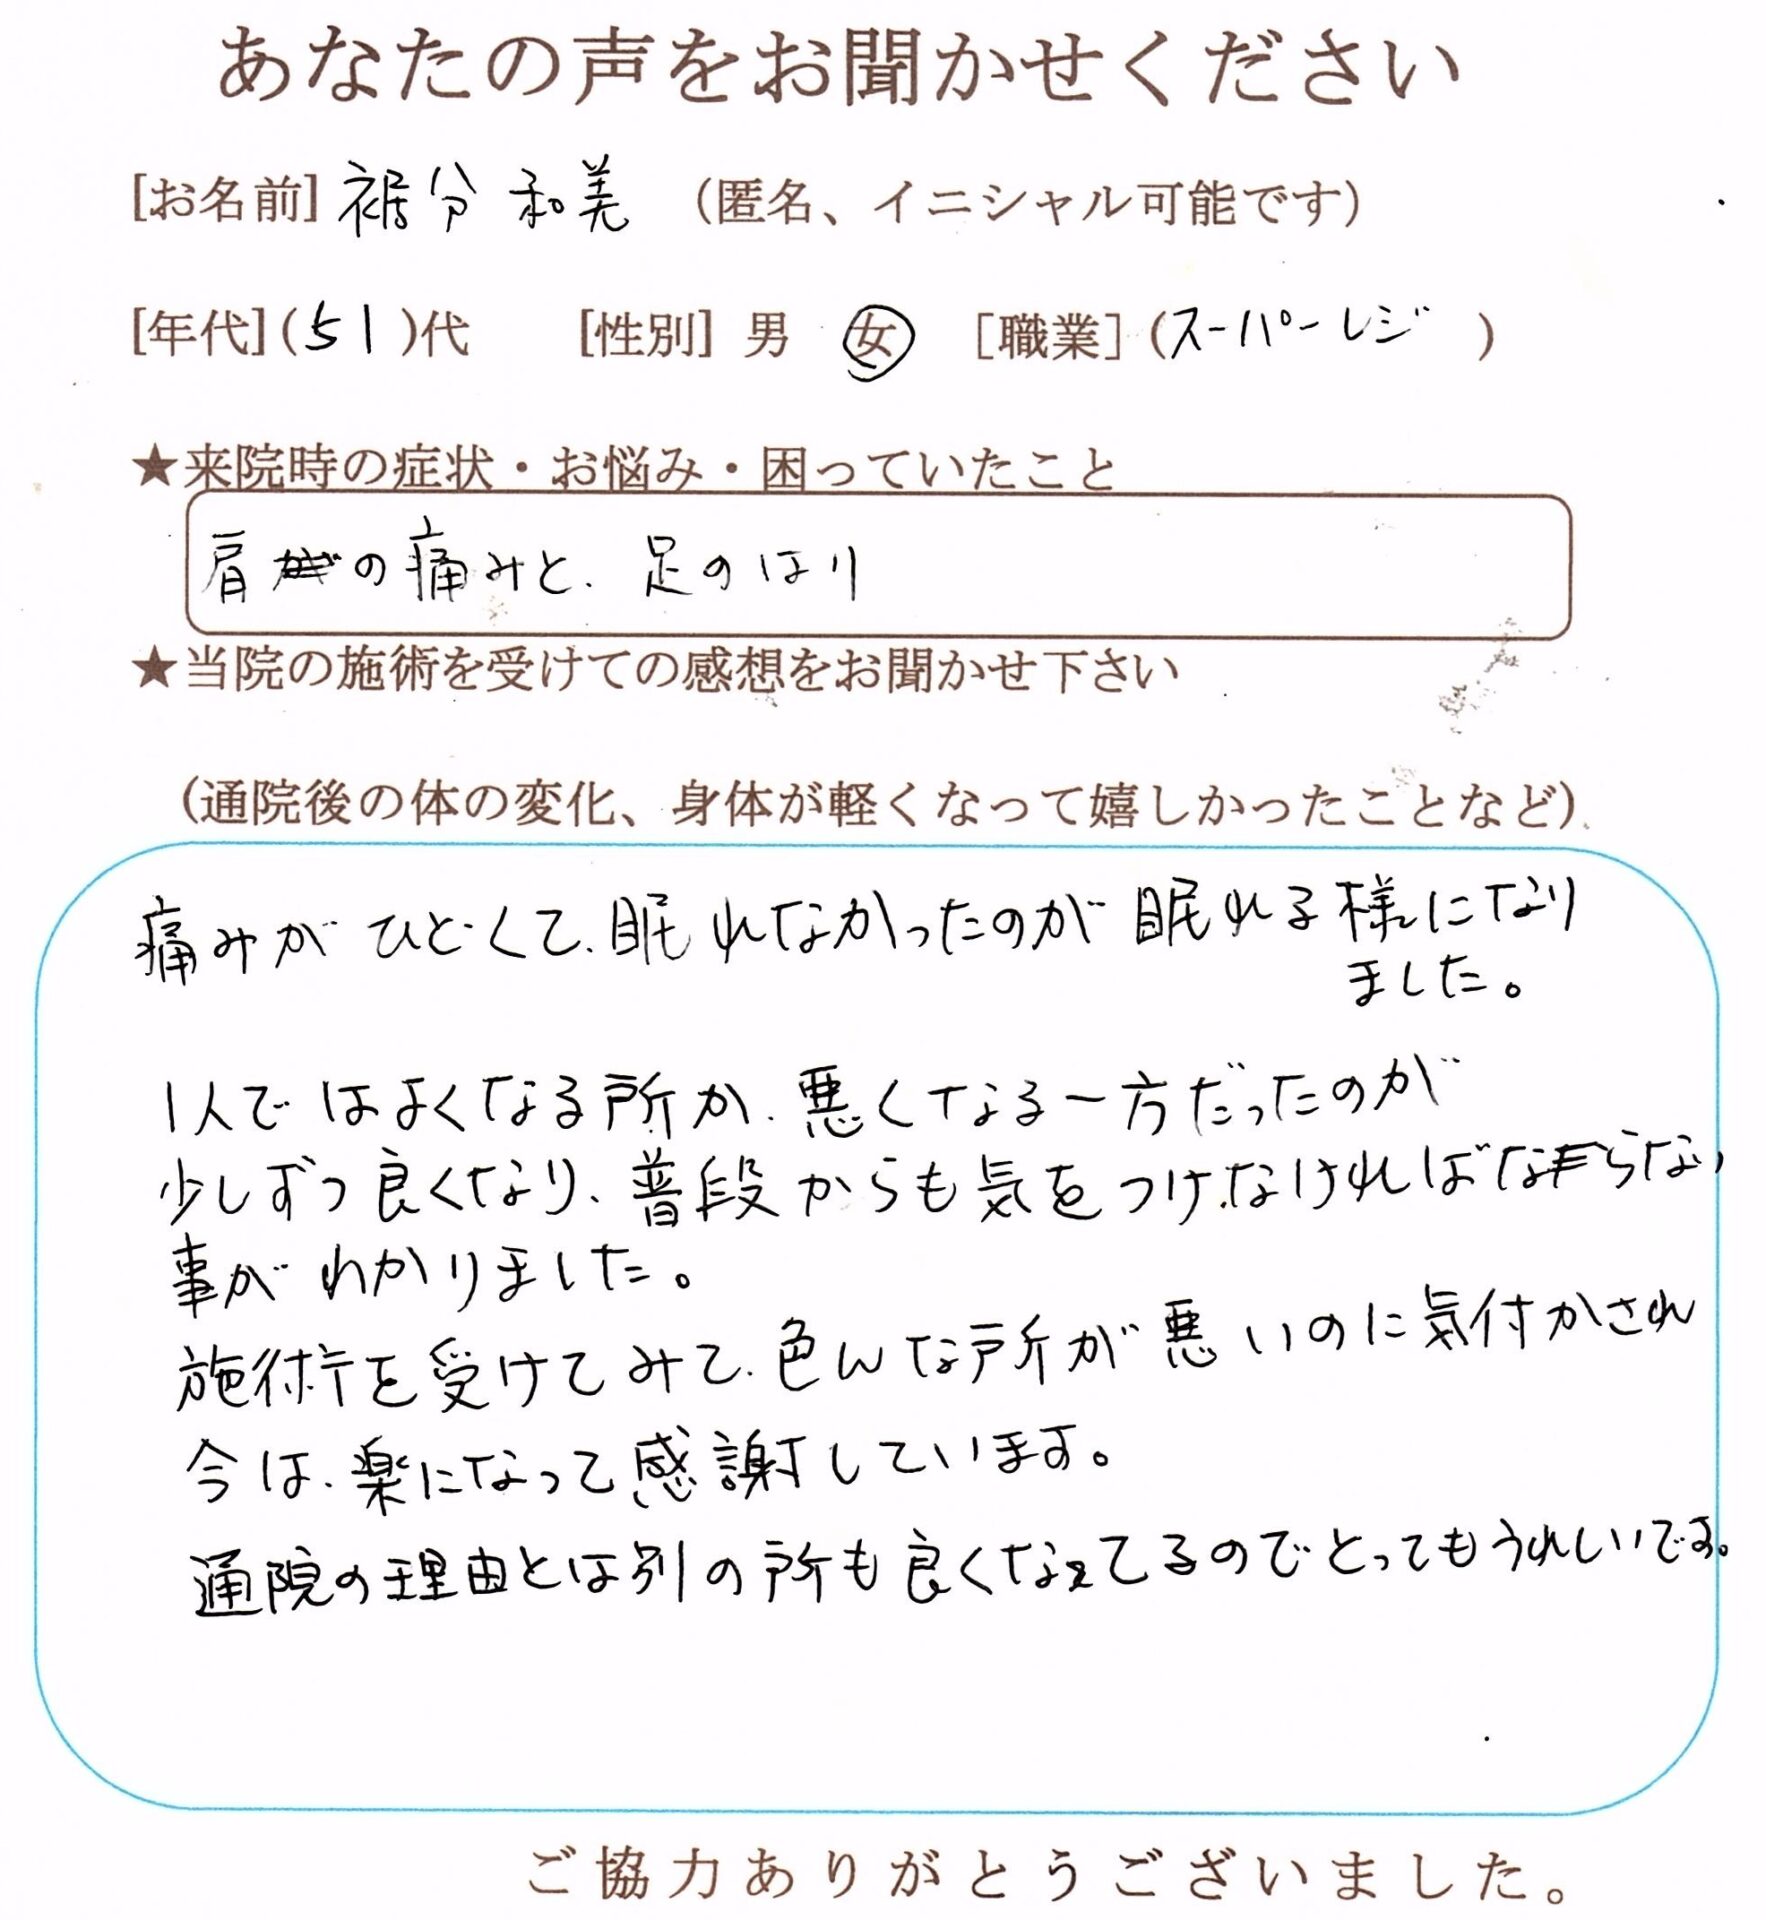 あなたの声をお聞かせください
[お名前] 裾分 和美 （匿名、イニシャル可能です）
[年代](51)代 [性別] 男 女 [職業](スーパーレジ )
★来院時の症状・お悩み・困っていたこと
肩の痛みと、足のはり
★当院の施術を受けての感想をお聞かせ下さい
（通院後の体の変化、身体が軽くなって嬉しかったことなど）
痛みがひどくて、眠れなかったのが眠れる様になり
ました。
1人ではよくなる所か、悪くなる一方だったのが
少しずつ良くなり、普段からも気をつけなければならない
事がわかりました。
施術を受けてみて、色んな所が悪いのに気付かされ
今は、楽になって感謝しています。
通院の理由とは別の所も良くなってるのでとってもうれしいです。
ご協力ありがとうございました。